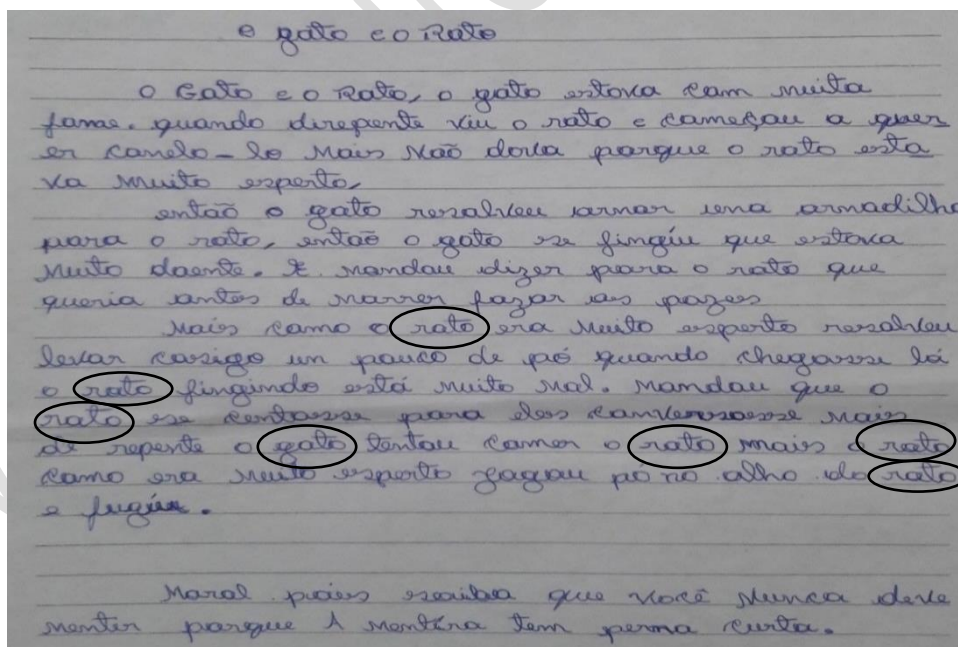 O gato e o Rato
O Gato e o Rato, o gato estova com muita
fome. quando direpente viu o rato e começou a quer
er comelo-lo Mais Não dova porque o rato esta
va Muito esperto,
então o gato resolveu armar uma armadilha
para o rato, então o gato se fingiu que estova
Muto doente. E mandou dizer para o rato que
queria antes de morrer fazar as pazes
Mais como o rato era Muito esperto resolveu
levar cosigo un pouco de pó quando chegasse lá
o rato fingindo está muito mal. Mandou que o
rato se centasse para eles conversasse mais
de repente o gato tentou comer o rato mais o rato
como era muito esperto jagou pó no olho do rato
e fugiu.
Moral pois saiba que você Nunca deve
mentir porque A mentira tem perna curta.